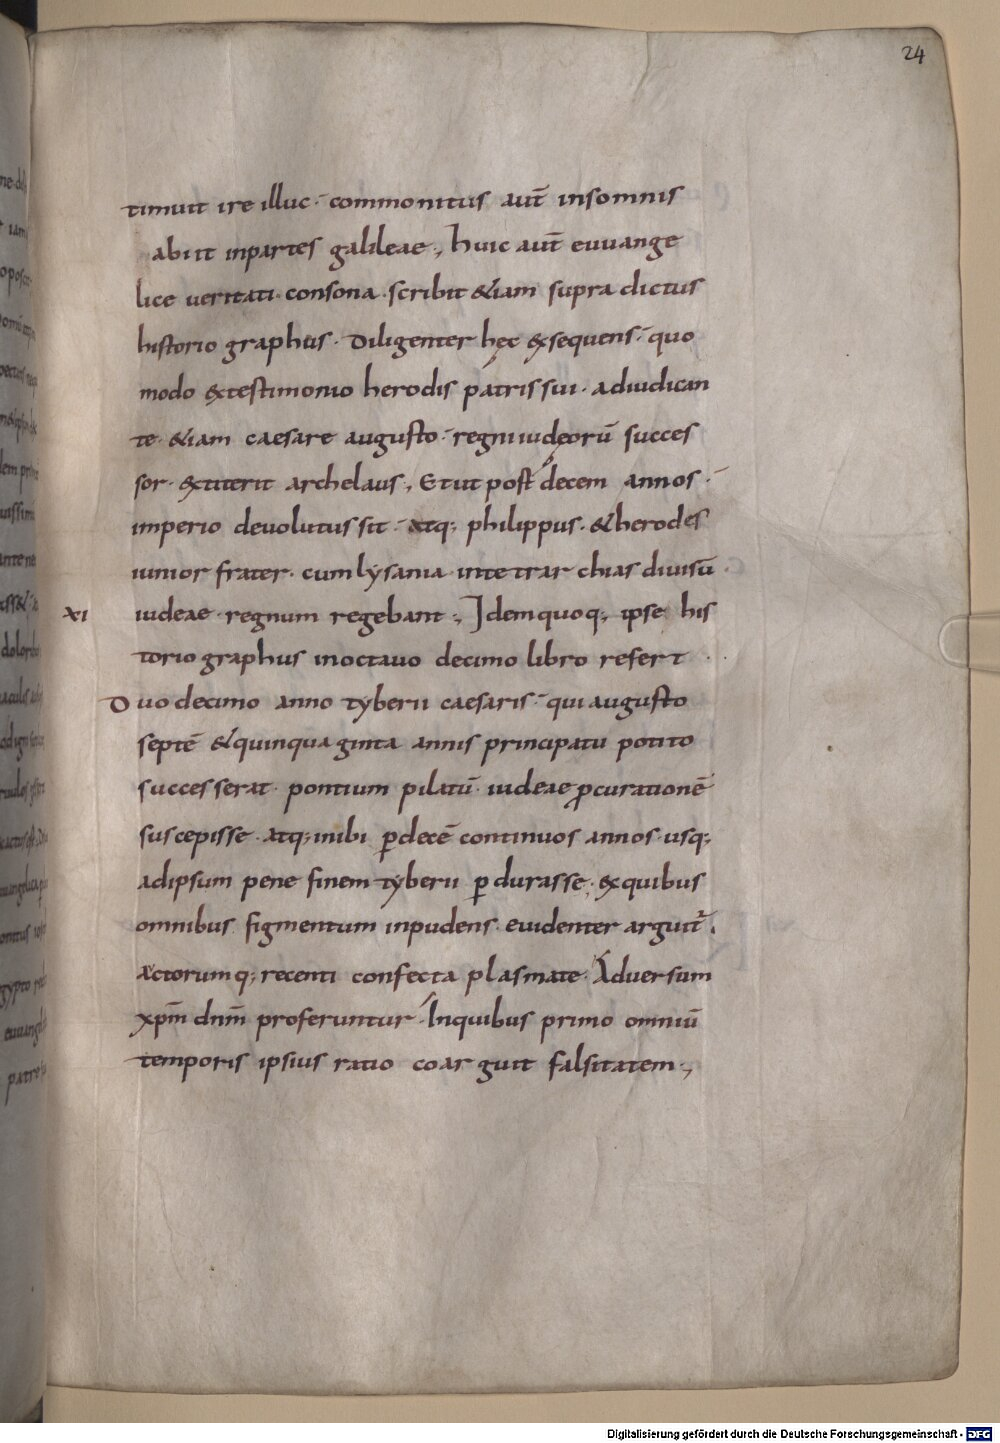 24
timuit ire illuc· commonitus aut̄ insomnis
abiit inpartes galileae., huic aut̄ euuange
lice ueritati· consona· scribit &iam supra dictus
historio graphus· Diligenter hęc exsequens· quo
modo extestimonio herodis patris sui· adiudican
te· &iam caesare augusto· regni iudęorū succes
sor· extiterit archelaus., Et ut post decem annos·
imperio deuolutus sit· atq; philippus· &herodes
iunior frater· cum lysania intetrarchias diuisū
XI iudeae regnum regebant., Idem quoq; ipse his
torio graphus inoctauo decimo libro refert
Duo decimo anno tyberii caesaris· qui augusto
septē &quinqua ginta annis principatu potito
successerat· pontium pilatū· iudeae ꝓcurationē
suscepisse· atq; inibi ꝑdecē continuos annos· usq;
adipsum pene finem tyberii ꝑ durasse· exquibus
omnibus figmentum inpudens euidenter arguit᷑.
actorumq; recenti confecta plasmate· Aduersum
xp̄m dnm̄ proferuntur· Inquibus primo omniū
temporis ipsius ratio coarguit falsitatem.,
Digitalisierung gefördert durch die Deutsche Forschungsgemeinschaft - DFG